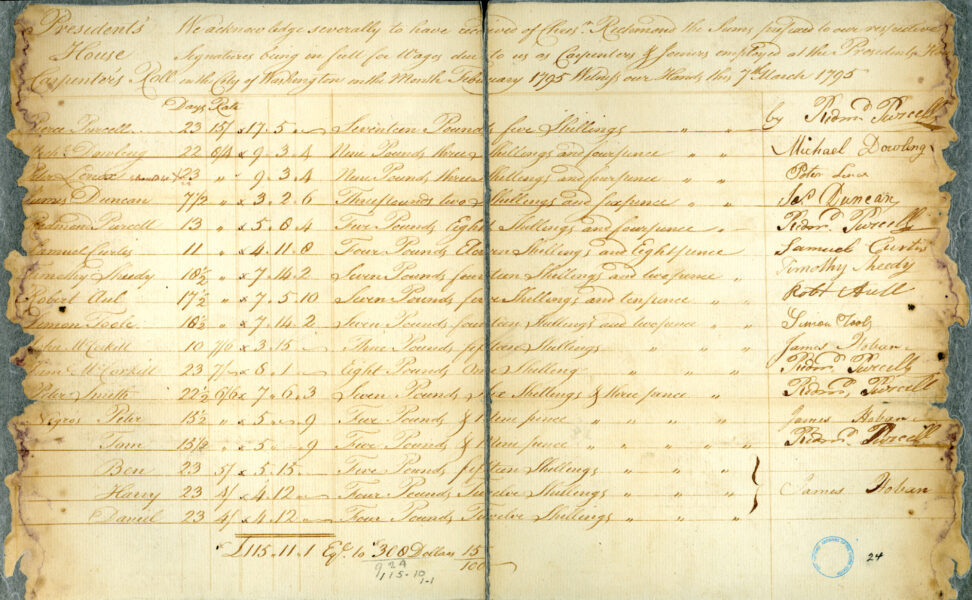 Presidents' We acknowledge severally to have received of Chrisr. Richmond the Sums prefixed to our respective
House Signatures being in full for Wages due to us as Carpenters & Joiners employed at the Presidents House
Carpenters Roll in the City of Washington in the Month February 1795 Witness our Hands this 7th March 1795
Days Rate
Pierce Purcell 23 15/ 17.5 Seventeen Pounds five Shillings " " by Redmd. Purcell
Dowling 22 8/4 9.3.4 Nine Pounds three Shillings and fourpence " " Michael Dowling
Peter 23 " 9.3.4 Nine Pounds three Shillings and fourpence " " Peter
James Duncan 7½ " 3.2.6 Three pounds two Shillings and sixpence " " Jas. Duncan
Redman Purcell 13 " 5.8.4 Five Pounds Eight Shillings and fourpence " " Redmd. Purcell
Samuel Curtis 11 " 4.11.8 Four Pounds Eleven Shillings and Eightpence " Samuel Curtis
Timothy Sheedy 18½ " 7.14.2 Seven Pounds fourteen Shillings and twopence " Timothy Sheedy
Robert Aul 17½ " 7.5.10 Seven Pounds five Shillings and tenpence " " Robt Aull
Simon Toole 18½ " 7.14.2 Seven Pounds fourteen Shillings and twopence " " Simon Toole
John McCorkill 10 7/6 3.15 Three Pounds fifteen Shillings " " " James Hoban
McCorkill 23 7/ 8.1 Eight Pounds One Shilling " " " Redmd. Purcell
Peter Smith 22½ 6/6 7.6.3 Seven Pounds Six Shillings & three pence " " Redmd. Purcell
Negros Peter 15½ " 5 " 9 Five Pounds & Nine pence " " " James Hoban
Tom 15½ " 5 " 9 Five Pounds & Nine pence " " " Redmd. Purcell
Ben 23 5/ 5.15 Five Pounds fifteen Shillings " " " "
Harry 23 4/ 4.12 Four Pounds Twelve Shillings " " " " James Hoban
Daniel 23 4/ 4.12 Four Pounds Twelve Shillings " " " "
£115.11.1 Eql. to 308 Dollars 15/100
115.10
1-1
24